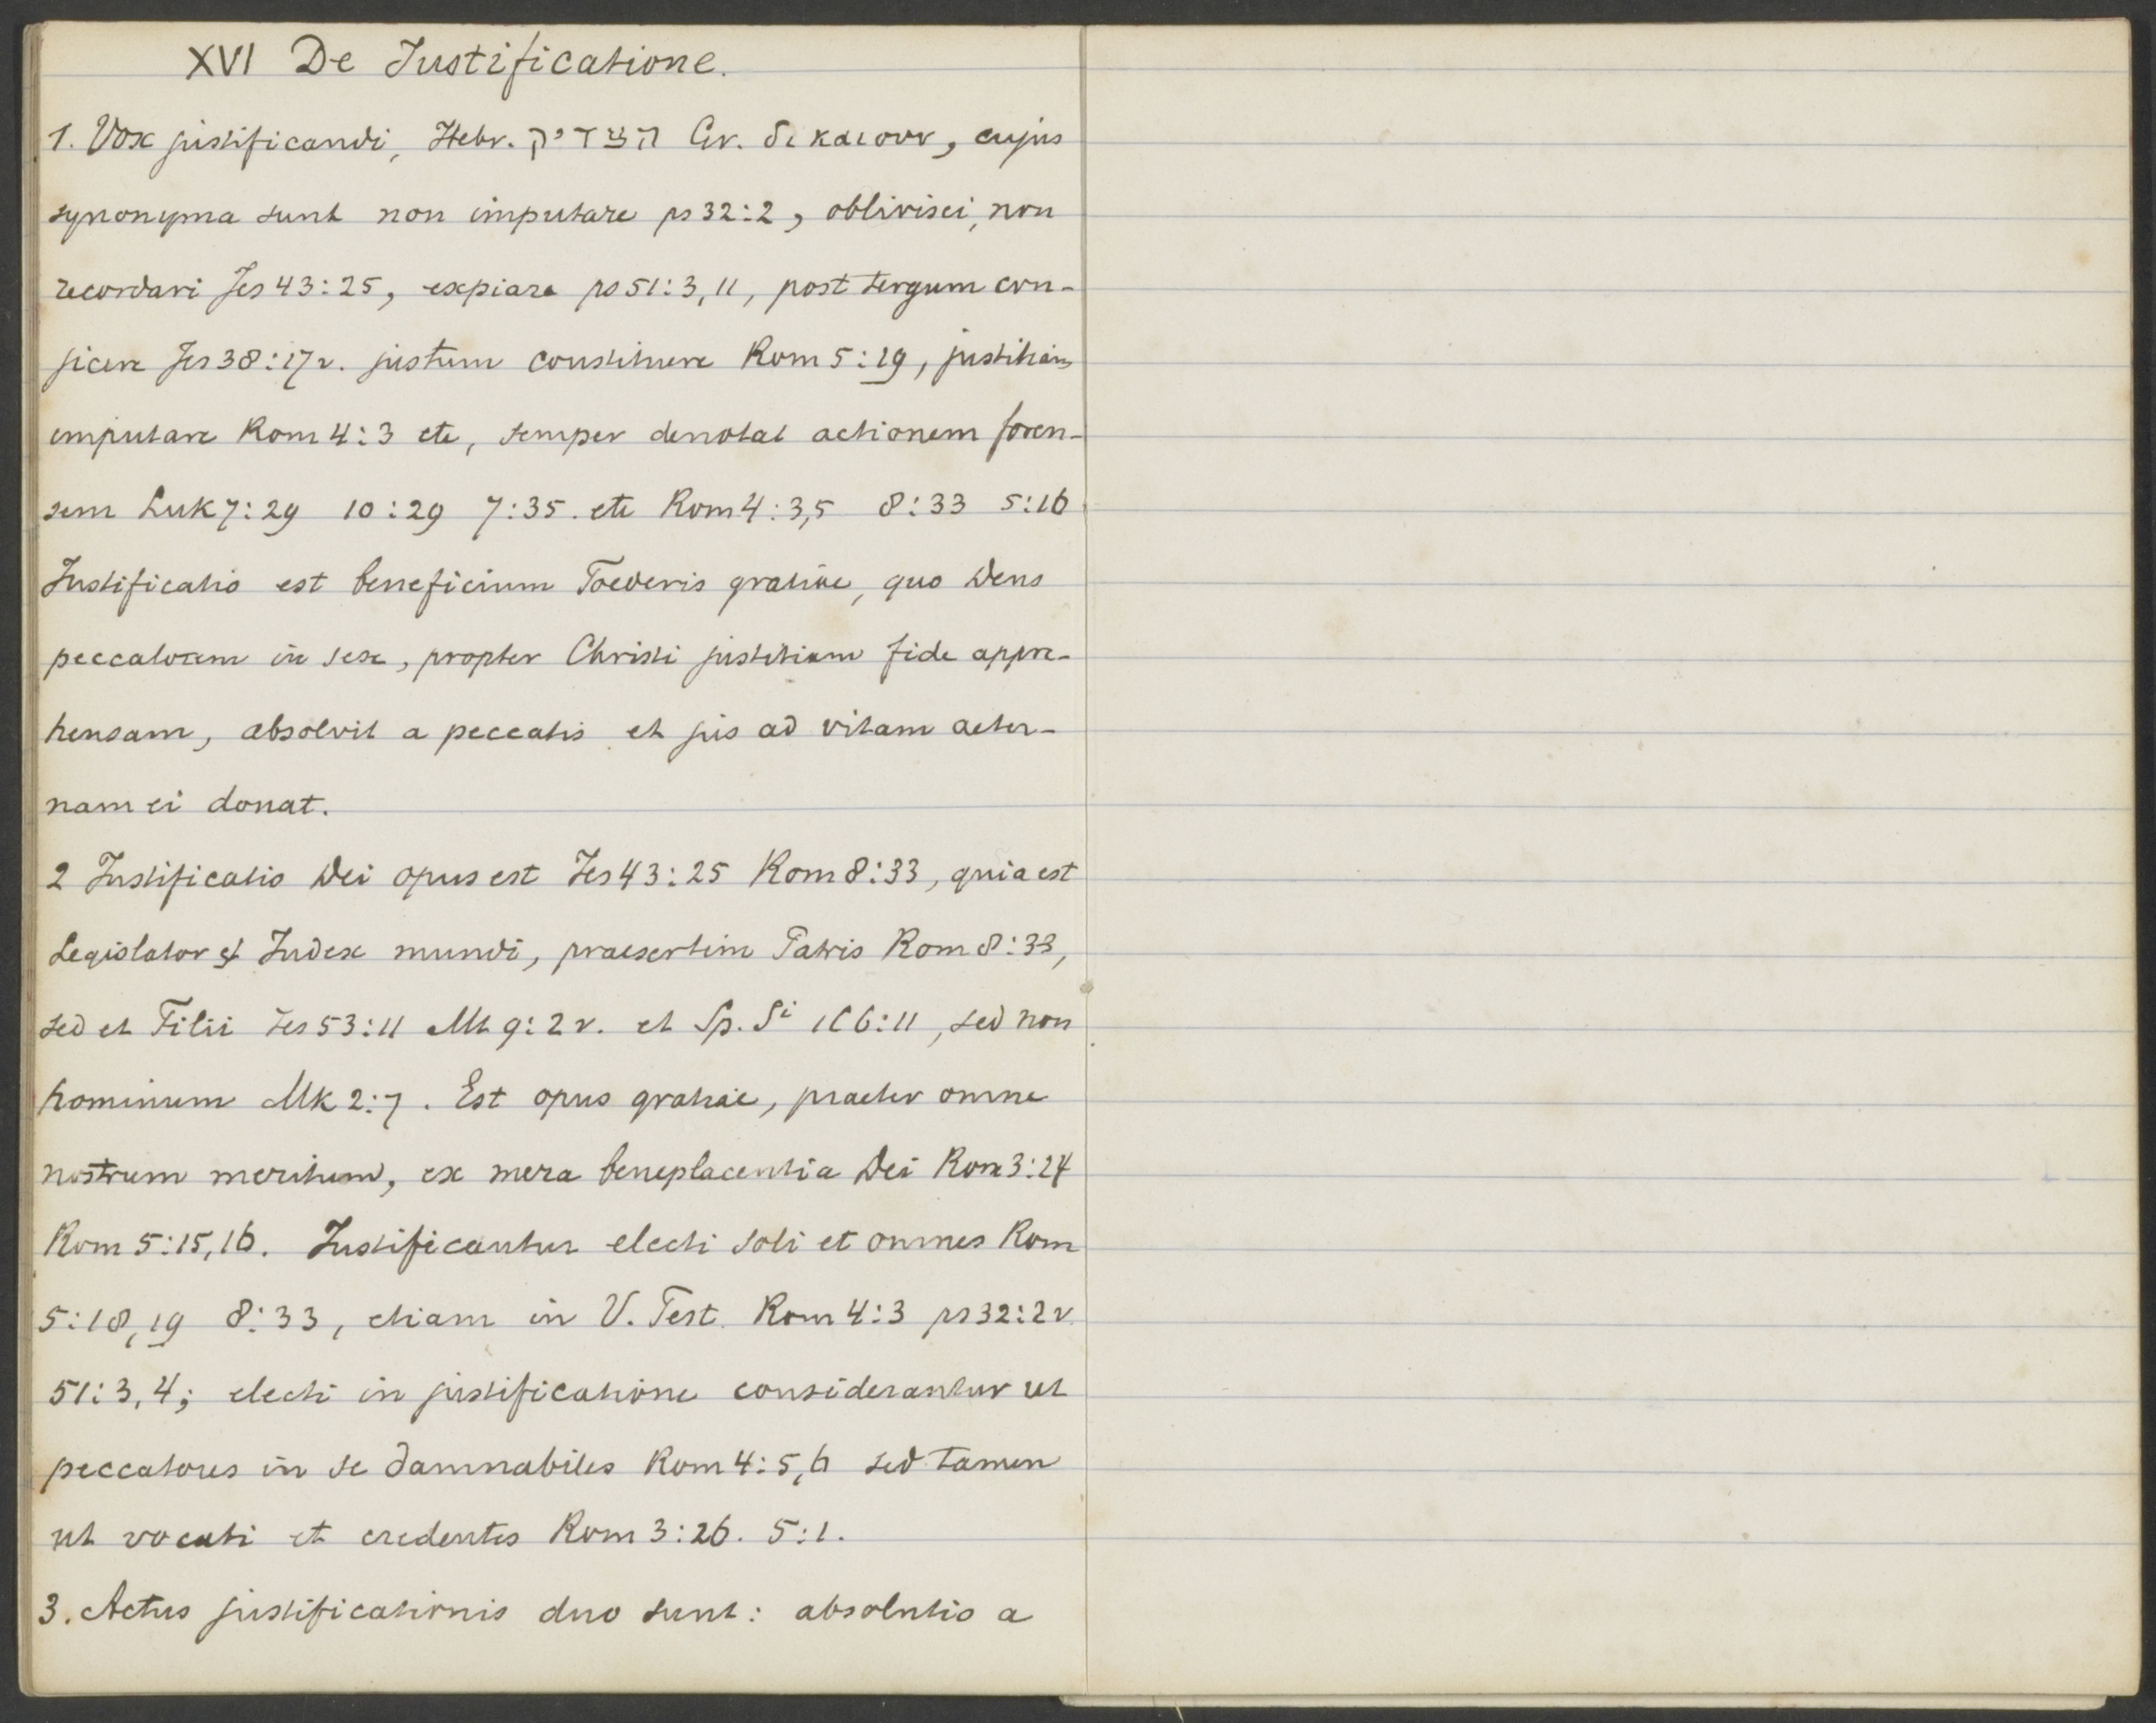 XVI De Justificatione.
1. Vox justificandi, Hebr. הצדיק Gr. δικαιουν, cujus
synonyma sunt non imputare ps 32:2, oblivisci, non
recordari Jes 43:25, expiare ps 51:3,11, post tergum con-
jicere Jes 38:17v. justum constituere Rom 5:19, justitiam
imputare Rom 4:3 etc, semper denotat actionem foren-
sem Luk 7:29 10:29 7:35. etc Rom 4:3,5 8:33 5:16
Justificatio est beneficium Foederis gratiae, quo Deus
peccatorem in sese, propter Christi justitiam fide appre-
hensam, absolvit a peccatis et jus ad vitam aeter-
nam ei donat.
2 Justificatio Dei opus est Jes 43:25 Rom 8:33, quia est
Legislator et Judex mundi, praesertim Patris Rom 8:33,
sed et Filii Jes 53:11 Mt 9:2v. et Sp. Si 1C 6:11, sed non
hominum Mk 2:7. Est opus gratiae, praeter omne
nostrum meritum, ex mera beneplacentia Dei Rom 3:24
Rom 5:15,16. Justificantur electi soli et omnes Rom
5:18,19 8:33, etiam in V. Test. Rom 4:3 ps 32:2v.
51:3,4; electi in justificatione considerantur ut
peccatores in se damnabiles Rom 4:5,6 sed tamen
ut vocati et credentes Rom 3:26. 5:1.
3. Actus justificationis duo sunt: absolutio a